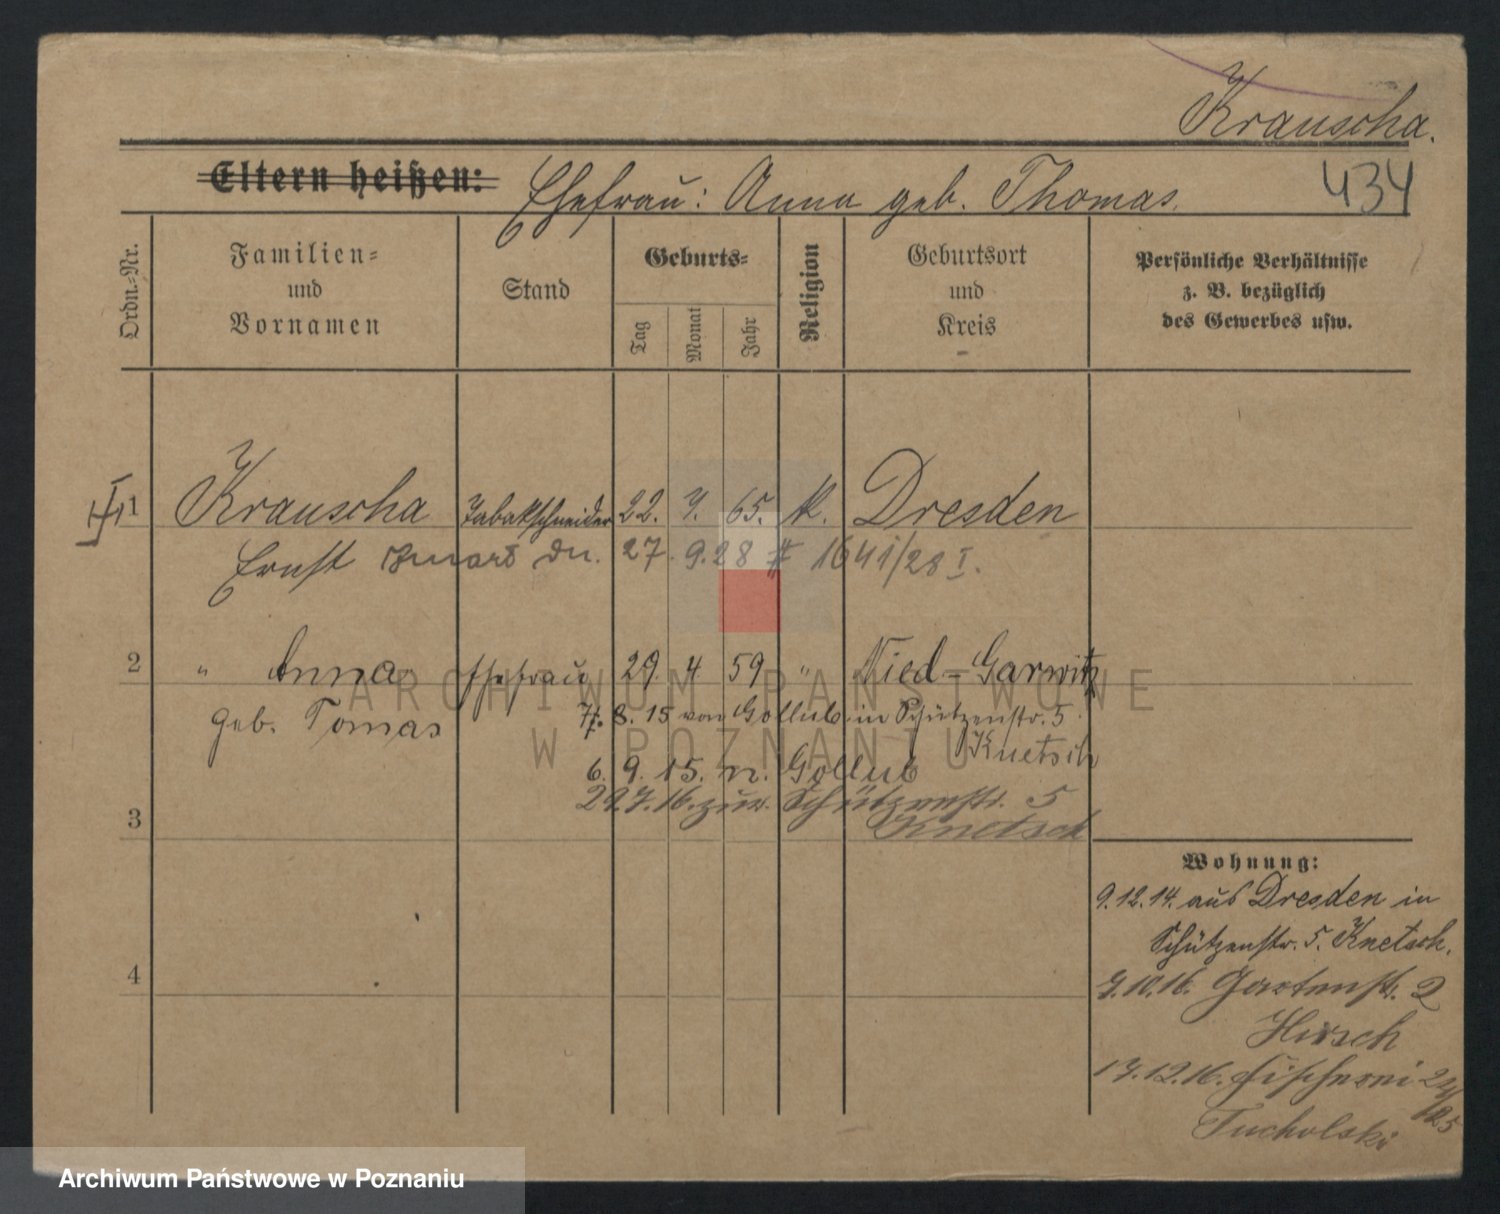 Krauscha.
434
Eltern heißen: Ehefrau: Anna geb. Thomas.
Ordn.-Nr.
Familien- und Vornamen
Stand
Geburts-
Tag
Monat
Jahr
Religion
Geburtsort und Kreis
Persönliche Verhältnisse z. B. bezüglich des Gewerbes usw.
1 Krauscha Tabakschneider 22. 7. 65. k. Dresden
Ernst 27. 9. 28 # 1641/28 I.
2 " Anna Ehefrau 29. 4 59 " Nied-Garwitz
geb. Tomas 7. 8. 15 von Gollub in Schützenstr. 5
Knetsch
6. 9. 15. n. Gollub
29.7.16. zur. Schützenstr. 5
Knetsch
3
4
Wohnung:
9.12.14. aus Dresden in
Schützenstr. 5. Knetsch.
9.10.16. Gartenstr. 2
Hirsch
17.12.16. Fischerei
Tucholski
ARCHIWUM PAŃSTWOWE
W POZNANIU
Archiwum Państwowe w Poznaniu